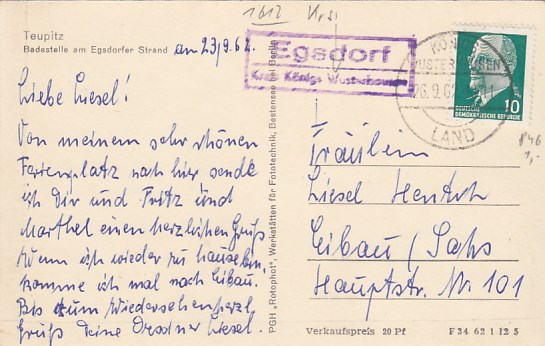 1612 Krs
Teupitz
Badestelle am Egsdorfer Strand
am 23/9.62.
Egsdorf
Kreis Königs Wusterhausen
KÖNIGS
WUSTERHAUSEN
26.9.62
LAND
10
DEUTSCHE
DEMOKRATISCHE REPUBLIK
Liebe Liesel!
Von meinem sehr schönen
Ferienplatz nach hier sende
ich Dir und Fritz und
Marthel einen herzlichen Gruß
Wenn ich wieder zu hause bin,
komme ich mal nach Eibau.
Bis zum Wiedersehen herzl.
Gruß Deine Dresdner Liesel.
PGH „Rotophot", Werkstätten für Fototechnik, Bestensee bei Berlin
Fräulein
Liesel Hentsch
Eibau / Sachs
Hauptstr. Nr. 101
Verkaufspreis 20 Pf
F 34 62 1 12 5